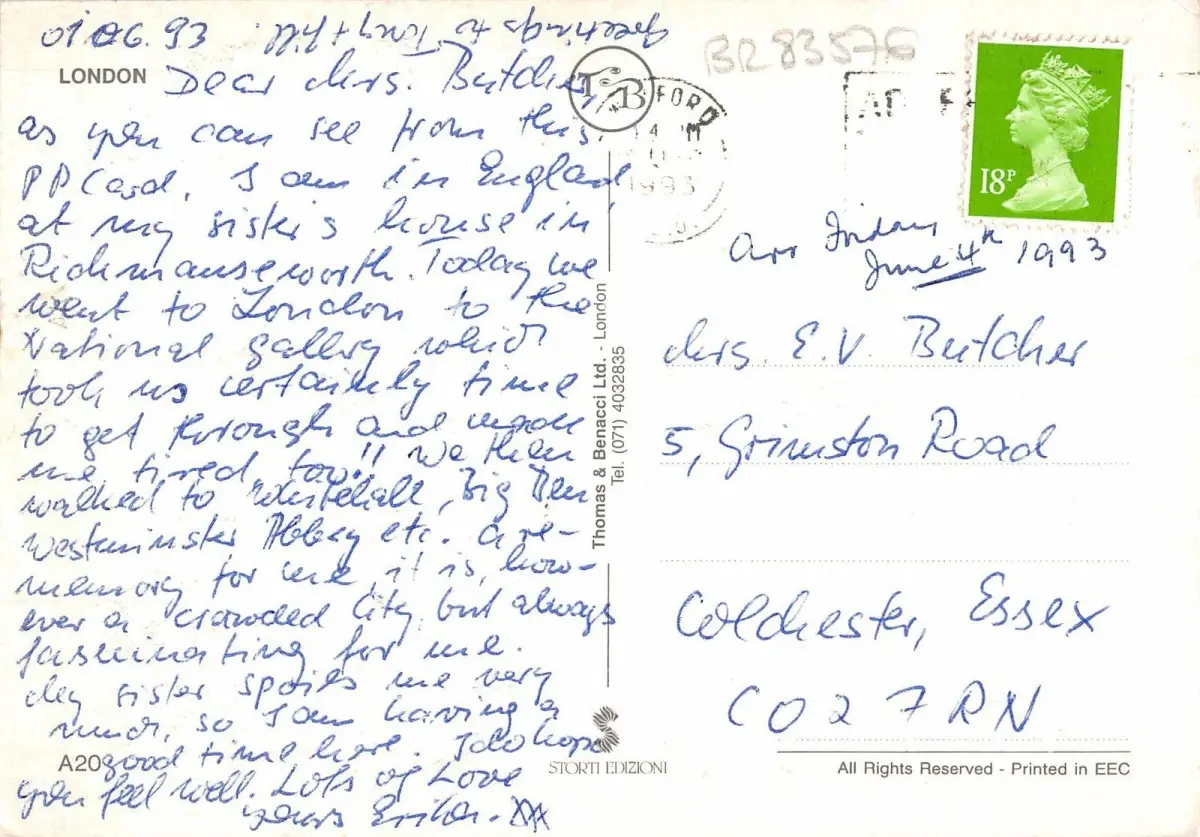 01.06.93
greetings to Tony + Jill.
LONDON
Dear Mrs. Butcher,
as you can see from this
PPCard, I am in England,
at my sister's house in
Richmanseworth. Today we
went to London to the
National gallery which
took us certainly time
to get thorough and made
me tired, too!! We then
walked to Whitehall, Big Ben
Westminster Abbey etc. a re-
memory for me, it is, how-
ever a crowded City, but always
fascinating for me.
My sister spoils me very
much, so I am having a
good time here. I do hope
you feel well. Lots of Love
yours Erika. XXX
A20
TB
Thomas & Benacci Ltd. - London
Tel. (071) 4032835
STORTI EDIZIONI
BR83576
FORD
1993
18P
Arr Friday
June 4th 1993
Mrs. E.V. Butcher
5, Grimston Road
Colchester, Essex
CO2 7RN
All Rights Reserved - Printed in EEC